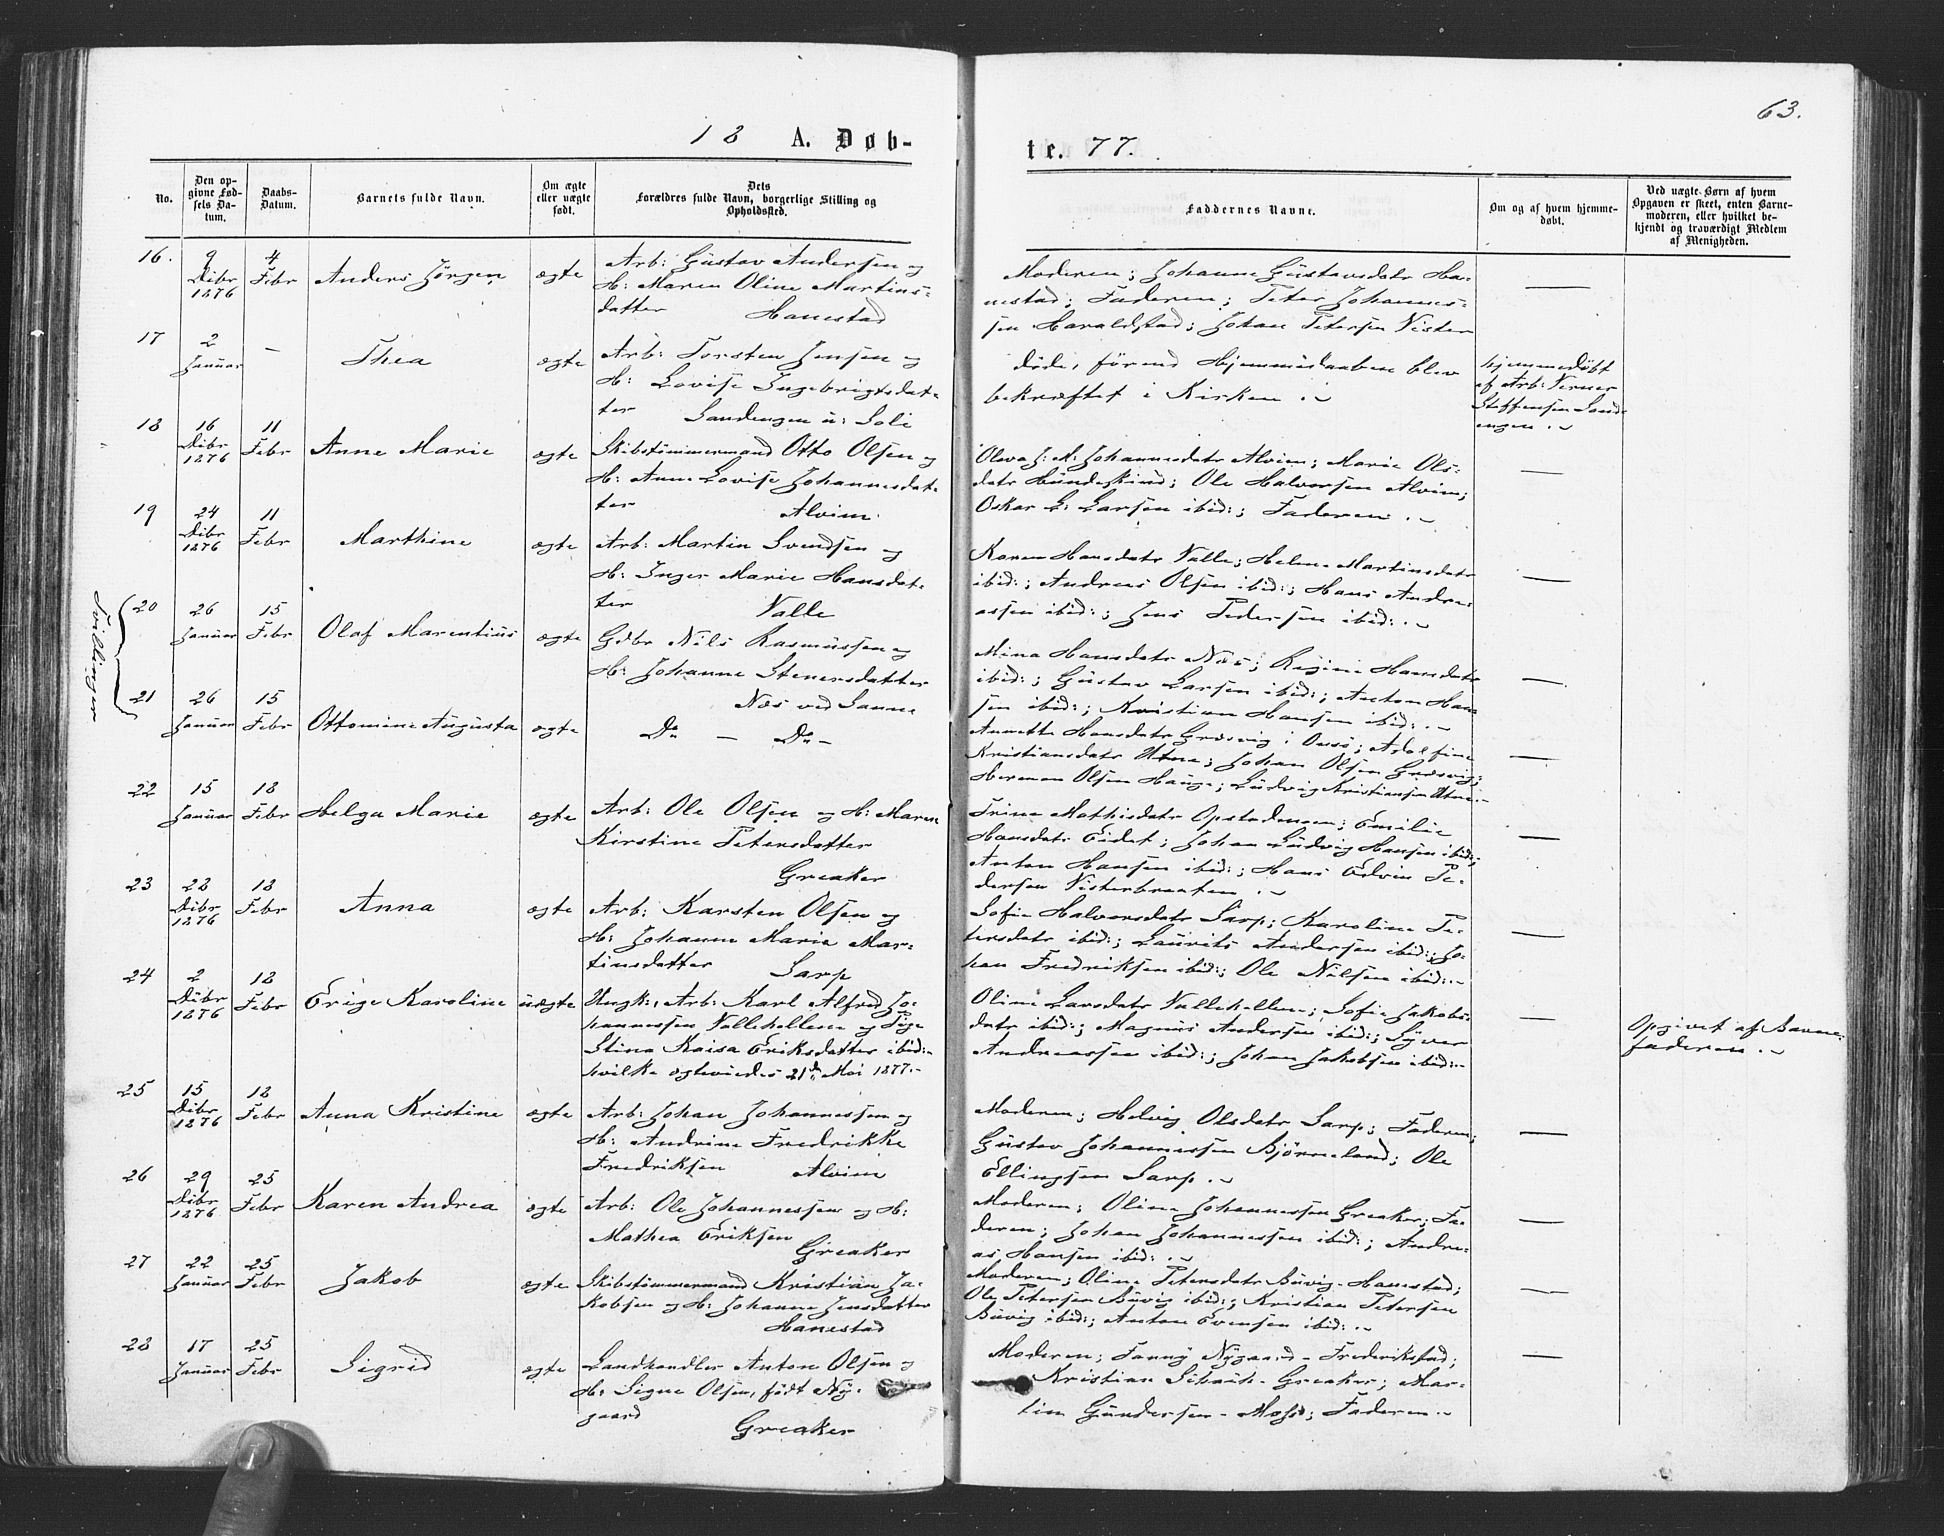 63.
18 A. Døb-
te. 77.
No.
Den op-
givne Fød-
sels Da-
tum.
Daabs-
Datum.
Barnets fulde Navn.
Om ægte
eller uægte
født.
Dets
Forældres fulde Navn, borgerlige Stilling og
Opholdssted.
Faddernes Navne.
Om og af hvem hjemme-
døbt.
Ved uægte Børn af hvem
Opgaven er skeet, enten Barne-
moderen, eller hvilket be-
kjendt og troværdigt Medlem
af Menigheden.
16.
9
Dcbr
1876
4
Febr
Anders Jørgen
ægte
Arb: Gustav Andersen og
H: Maren Oline Martins-
datter Hanestad
Moderen; Johanne Gustavsdatr Ha-
nestad; Faderen; Peter Johannes-
sen Haraldstad; Johan Petersen Vister
—
17
2
Januar
-
Thea
ægte
Arb: Torsten Jensen og
H: Lovise Ingebrigtsdat-
ter Sandengen u: Soli
døde, førend Hjemmedaaben blev
bekræftet i Kirken.
hjemmedøbt
af Arb: Verner
Steffensen Sand-
engen.
18
16
Dcbr
1876
11
Febr
Anne Marie
ægte
Skibstømmermand Otto Olsen og
H: Anne Lovise Johannesdat-
ter Alvim.
Olava J: M: Johannesdatr Alvim; Marie Ols-
datr Hundeskind; Ole Halvorsen Alvim;
Oskar L: Larsen ibid:; Faderen.
—
19
24
Dcbr
1876
11
Febr
Marthine
ægte
Arb: Martin Svendsen og
H: Inger Marie Hansdat-
ter Valle
Karen Hansdatr Valle; Helene Martinsdatr
ibid:; Andreas Olsen ibid:; Hans Andre-
assen ibid:; Jens Pedersen ibid:.
—
Tvillinger
20
26
Januar
15
Febr
Olaf Marentius
ægte
Gdbr Nils Rasmussen og
H: Johanne Stenersdatter
Næs ved Sanne
Mina Hansdatr Næs; Regine Hansdatr
ibid:; Gustav Larsen ibid:; Anton Han-
sen ibid:; Kristian Hansen ibid:.
—
21
26
Januar
15
Febr
Ottomine Augusta
ægte
Do — Do —
Annette Hansdatr Græsvig i Onsø; Adolfine
Kristiansdatr Utne; Johan Olsen Græsvig;
Herman Olsen Hauge; Ludvig Kristiansen Utne.
—
22
15
Januar
18
Febr
Helga Marie
ægte
Arb: Ole Olsen og H: Maren
Kirstine Petersdatter
Greaker
Trine Mathisdatr Opstadengen; Emilie
Hansdatr Eidet; Johan Ludvig Hansen ibid:;
Anton Hansen ibid:; Hans Edvin Pe-
dersen Visterbraaten.
—
23
28
Dcbr
1876
18
Febr
Anna
ægte
Arb: Karsten Olsen og
H: Johanne Marie Mar-
tinsdatter Sarp
Sofie Halvorsdatr Sarp; Karoline Pe-
tersdatr ibid:; Laurits Andersen ibid:; Jo-
han Fredriksen ibid:; Ole Nilsen ibid:.
—
24
2
Dcbr
1876
18
Febr
Erige Karoline
uægte
Ungk:, Arb: Karl Alfred Jo-
hannessen Vallehellene og Pige
Stina Kaisa Eriksdatter ibid:.
hvilke ægteviedes 21de Mai 1877.
Oline Larsdatr Vallehellene; Sofie Jakobs-
datr ibid:; Magnus Andersen ibid:; Syver
Andreassen ibid:; Johan Jakobsen ibid:.
—
Opgivet af Barne-
faderen.
25
15
Dcbr
1876
18
Febr
Anna Kristine
ægte
Arb: Johan Johannessen og
H: Andrine Fredrikke
Fredriksen Alvim
Moderen; Helvig Olsdatr Sarp; Faderen;
Gustav Johannessen Bjørneland; Ole
Ellingsen Sarp.
—
26
29
Dcbr
1876
25
Febr
Karen Andrea
ægte
Arb: Ole Johannessen og H:
Mathea Eriksen
Greaker
Moderen; Oline Johannessen Greaker; Fa-
deren; Johan Johannessen ibid:; Andre-
as Hansen ibid:.
—
27
22
Januar
25
Febr
Jakob
ægte
Skibstømmermand Kristian Ja-
kobsen og H: Johanne Jensdatter
Hanestad
Moderen; Oline Petersdatr Buvig-Hanestad;
Ole Petersen Buvig ibid:; Kristian Petersen
Buvig ibid:; Anton Evensen ibid:.
—
28
17
Januar
25
Febr
Sigrid
ægte
Landhandler Anton Olsen og
H: Signe Olsen, født Ny-
gaard
Greaker
Moderen; Fanny Nygaard-Frederikstad;
Kristian Greaker; Mar-
tin Gundersen-Moss; Faderen.
—